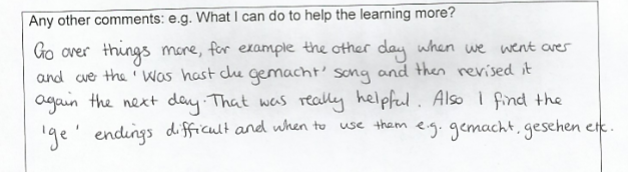 Any other comments: e.g. What I can do to help the learning more?
Go over things more, for example the other day when we went over
and over the 'Was hast du gemacht' song and then revised it
again the next day. That was really helpful. Also I find the
'ge' endings difficult and when to use them e.g. gemacht, gesehen etc.